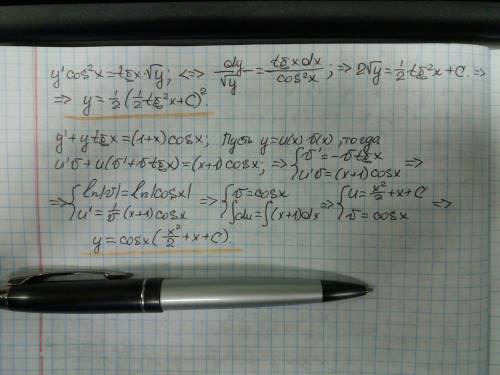 y'cos²x=tgx·√y; <=> dy/√y = tgxdx/cos²x; => 2√y=½tg²x+C. =>
=> y=½(½tg²x+C)².
y'+ytgx=(1+x)cosx; Пусть y=u(x)·v(x), тогда
u'v+u(v'+vtgx)=(x+1)cosx; => { v'=-vtgx u'v=(x+1)cosx =>
=> { ln|v|=ln|cosx| u'=1/v(x+1)cosx => { v=cosx ∫du=∫(x+1)dx => { u=x²/2+x+C v=cosx =>
y=cosx(x²/2+x+C).